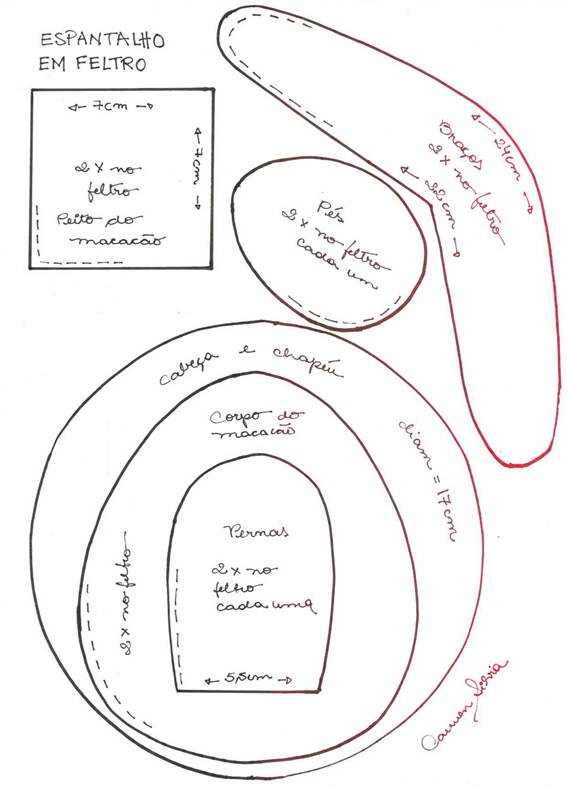 ESPANTALHO
EM FELTRO
7cm
7cm
2 x no
feltro
Peito do
macacão
24cm
Braços
2 x no feltro
22cm
Pés
2 x no feltro
cada um
cabeça e chapéu
diam = 17cm
Corpo do
macacão
2 x no feltro
Pernas
2 x no
feltro
cada uma
5,5cm
Carmen